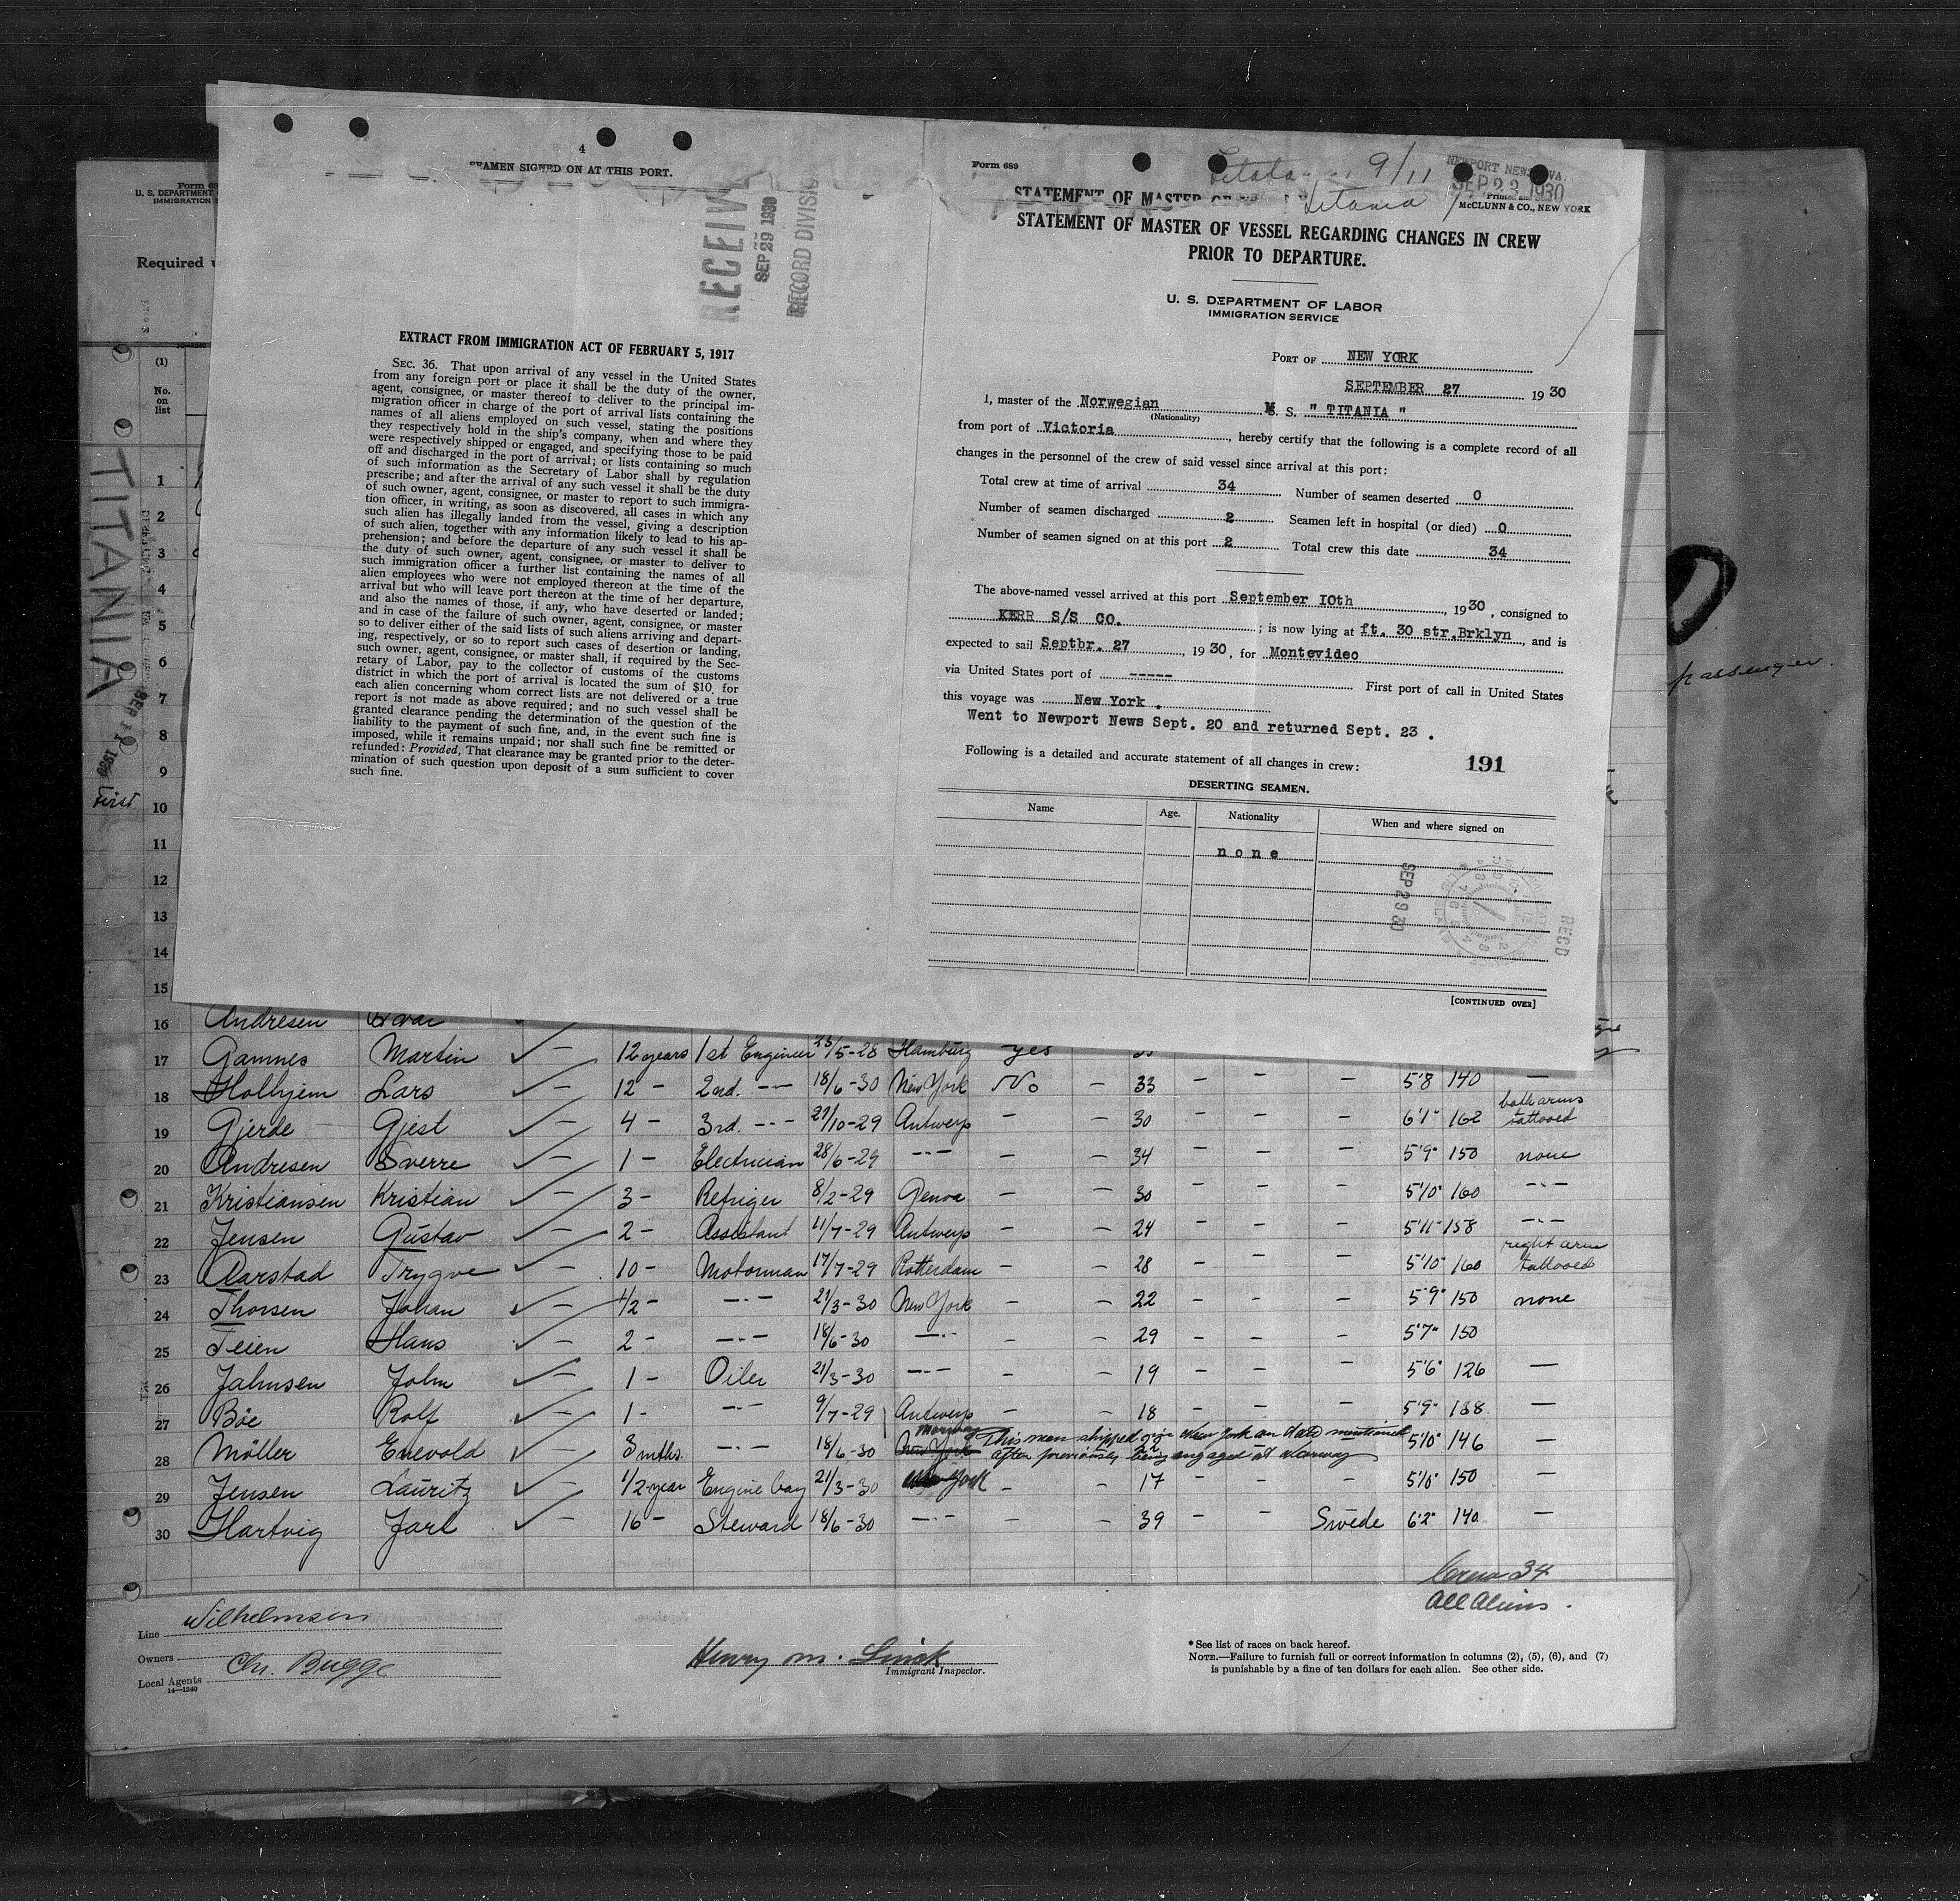 4
SEAMEN SIGNED ON AT THIS PORT.
RECEIVED
SEP 29 1930
RECORD DIVISION
EXTRACT FROM IMMIGRATION ACT OF FEBRUARY 5, 1917
SEC. 36. That upon arrival of any vessel in the United States
from any foreign port or place it shall be the duty of the owner,
agent, consignee, or master thereof to deliver to the principal im-
migration officer in charge of the port of arrival lists containing the
names of all aliens employed on such vessel, stating the positions
they respectively hold in the ship's company, when and where they
were respectively shipped or engaged, and specifying those to be paid
off and discharged in the port of arrival; or lists containing so much
of such information as the Secretary of Labor shall by regulation
prescribe; and after the arrival of any such vessel it shall be the duty
of such owner, agent, consignee, or master to report to such immigra-
tion officer, in writing, as soon as discovered, all cases in which any
such alien has illegally landed from the vessel, giving a description
of such alien, together with any information likely to lead to his ap-
prehension; and before the departure of any such vessel it shall be
the duty of such owner, agent, consignee, or master to deliver to
such immigration officer a further list containing the names of all
alien employees who were not employed thereon at the time of the
arrival but who will leave port thereon at the time of her departure,
and also the names of those, if any, who have deserted or landed;
and in case of the failure of such owner, agent, consignee, or master
so to deliver either of the said lists of such aliens arriving and depart-
ing, respectively, or so to report such cases of desertion or landing,
such owner, agent, consignee, or master shall, if required by the Sec-
retary of Labor, pay to the collector of customs of the customs
district in which the port of arrival is located the sum of $10 for
each alien concerning whom correct lists are not delivered or a true
report is not made as above required; and no such vessel shall be
granted clearance pending the determination of the question of the
liability to the payment of such fine, and, in the event such fine is
imposed, while it remains unpaid; nor shall such fine be remitted or
refunded: Provided, That clearance may be granted prior to the deter-
mination of such question upon deposit of a sum sufficient to cover
such fine.
Form 689
9/11
Titania
NEWPORT NEWS, VA.
SEP 23 1930
McCLUNN & CO., NEW YORK
STATEMENT OF MASTER
STATEMENT OF MASTER OF VESSEL REGARDING CHANGES IN CREW
PRIOR TO DEPARTURE.
U. S. DEPARTMENT OF LABOR
IMMIGRATION SERVICE
PORT OF NEW YORK
SEPTEMBER 27 1930
I, master of the Norwegian M S. S. " TITANIA "
(Nationality)
from port of Victoria, hereby certify that the following is a complete record of all
changes in the personnel of the crew of said vessel since arrival at this port:
Total crew at time of arrival 34 Number of seamen deserted 0
Number of seamen discharged 2 Seamen left in hospital (or died) 0
Number of seamen signed on at this port 2 Total crew this date 34
The above-named vessel arrived at this port September 10th, 1930, consigned to
KERR S/S CO. ; is now lying at ft. 30 str.Brklyn, and is
expected to sail Septbr. 27, 1930, for Montevideo
via United States port of ----- First port of call in United States
this voyage was New York .
Went to Newport News Sept. 20 and returned Sept. 23 .
Following is a detailed and accurate statement of all changes in crew: 191
DESERTING SEAMEN.
Name Age. Nationality When and where signed on
none
SEP 29 30
REC'D
[CONTINUED OVER]
Form 68
U. S. DEPARTMENT
IMMIGRATION
Required
(1)
No.
on
list
TITANIA
SEP 11 1930
First
passenger.
1
2
3
4
5
6
7
8
9
10
11
12
13
14
15
16 Andresen
17 Gamnes Martin ✓ – 12 years 1st Engineer 25/5-28 Hamburg yes
18 Holhjem Lars ✓ – 12 – 2nd. -"- 18/6-30 New York No – 33 – – – 5'8 140 –
19 Gjerde Gjest ✓ – 4 – 3rd. -"- 27/10-29 Antwerp – – 30 – – – 6'1" 162 both arms tattooed
20 Andresen Sverre ✓ – 1 – Electrician 28/6-29 -"- – – 34 – – – 5'9" 150 none
21 Kristiansen Kristian ✓ – 3 – Refriger 8/2-29 Genoa – – 30 – – – 5'10" 160 -"-
22 Jensen Gustav ✓ – 2 – Assistant 11/7-29 Antwerp – – 24 – – – 5'11" 158 -"-
23 Aarstad Trygve ✓ – 10 – Motorman 17/7-29 Rotterdam – – 28 – – – 5'10" 160 right arm tattooed
24 Thorsen Johan ✓ – 1/2 – -"- 21/3-30 New York – – 22 – – – 5'9" 150 none
25 Teien Hans ✓ – 2 – -"- 18/6-30 -"- – – 29 – – – 5'7" 150
26 Jahnsen John ✓ – 1 – Oiler 21/3-30 -"- – – 19 – – – 5'6" 126 –
27 Böe Rolf ✓ – 1 – -"- 9/7-29 Antwerp – – 18 – – – 5'9" 138 –
28 Möller Enevold ✓ – 3 mths. -"- 18/6-30 New York This man shipped in New York on date mentioned 5'10" 146 –
after previously being engaged at Norway
29 Jensen Lauritz ✓ – 1/2 year Engine boy 21/3-30 New York – – 17 – – – 5'10" 150 –
30 Hartvig Jarl ✓ – 16 – Steward 18/6-30 -"- – – 39 – – Swede 6'2" 140 –
Crew 34
All Aliens.
Line Wilhelmsen
Owners
Local Agents Chr. Bugge
14—1240
Henry M.
Immigrant Inspector.
* See list of races on back hereof.
NOTE.—Failure to furnish full or correct information in columns (2), (5), (6), and (7)
is punishable by a fine of ten dollars for each alien. See other side.